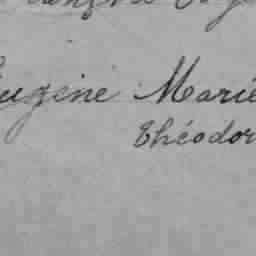 Eugène Marie
Théodor